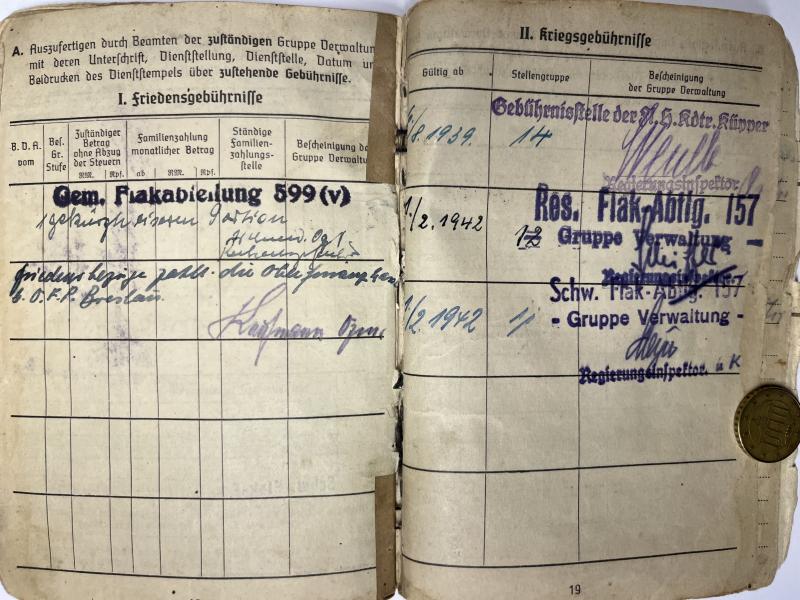 A. Auszufertigen durch Beamten der zuständigen Gruppe Verwaltun
mit deren Unterschrift, Dienststellung, Dienststelle, Datum un
Beidrucken des Dienststempels über zustehende Gebührnisse.
I. Friedensgebührnisse
B. D. A. vom
Bes. Gr. Stufe
Zuständiger Betrag ohne Abzug der Steuern
RM. Rpf.
Familienzahlung monatlicher Betrag
ab RM. Rpf.
Ständige Familien-zahlungs-stelle
Bescheinigung de
Gruppe Verwaltu
Gem. Flakabteilung 599 (v)
Friedensbezüge zahlt die
b. O.F.P. Breslau.
Kaufmann
II. Kriegsgebührnisse
Gültig ab
Stellengruppe
Bescheinigung
der Gruppe Verwaltung
Gebührnisstelle der Fl. H. Kdtr. Küpper
/8.1939. 14
Regierungsinspektor
1./2.1942 12
Res. Flak-Abtlg. 157
Gruppe Verwaltung -
Regierungsinspektor.
Schw. Flak-Abtlg. 157
- Gruppe Verwaltung -
/2.1942 11
Regierungsinspektor. ü K
19